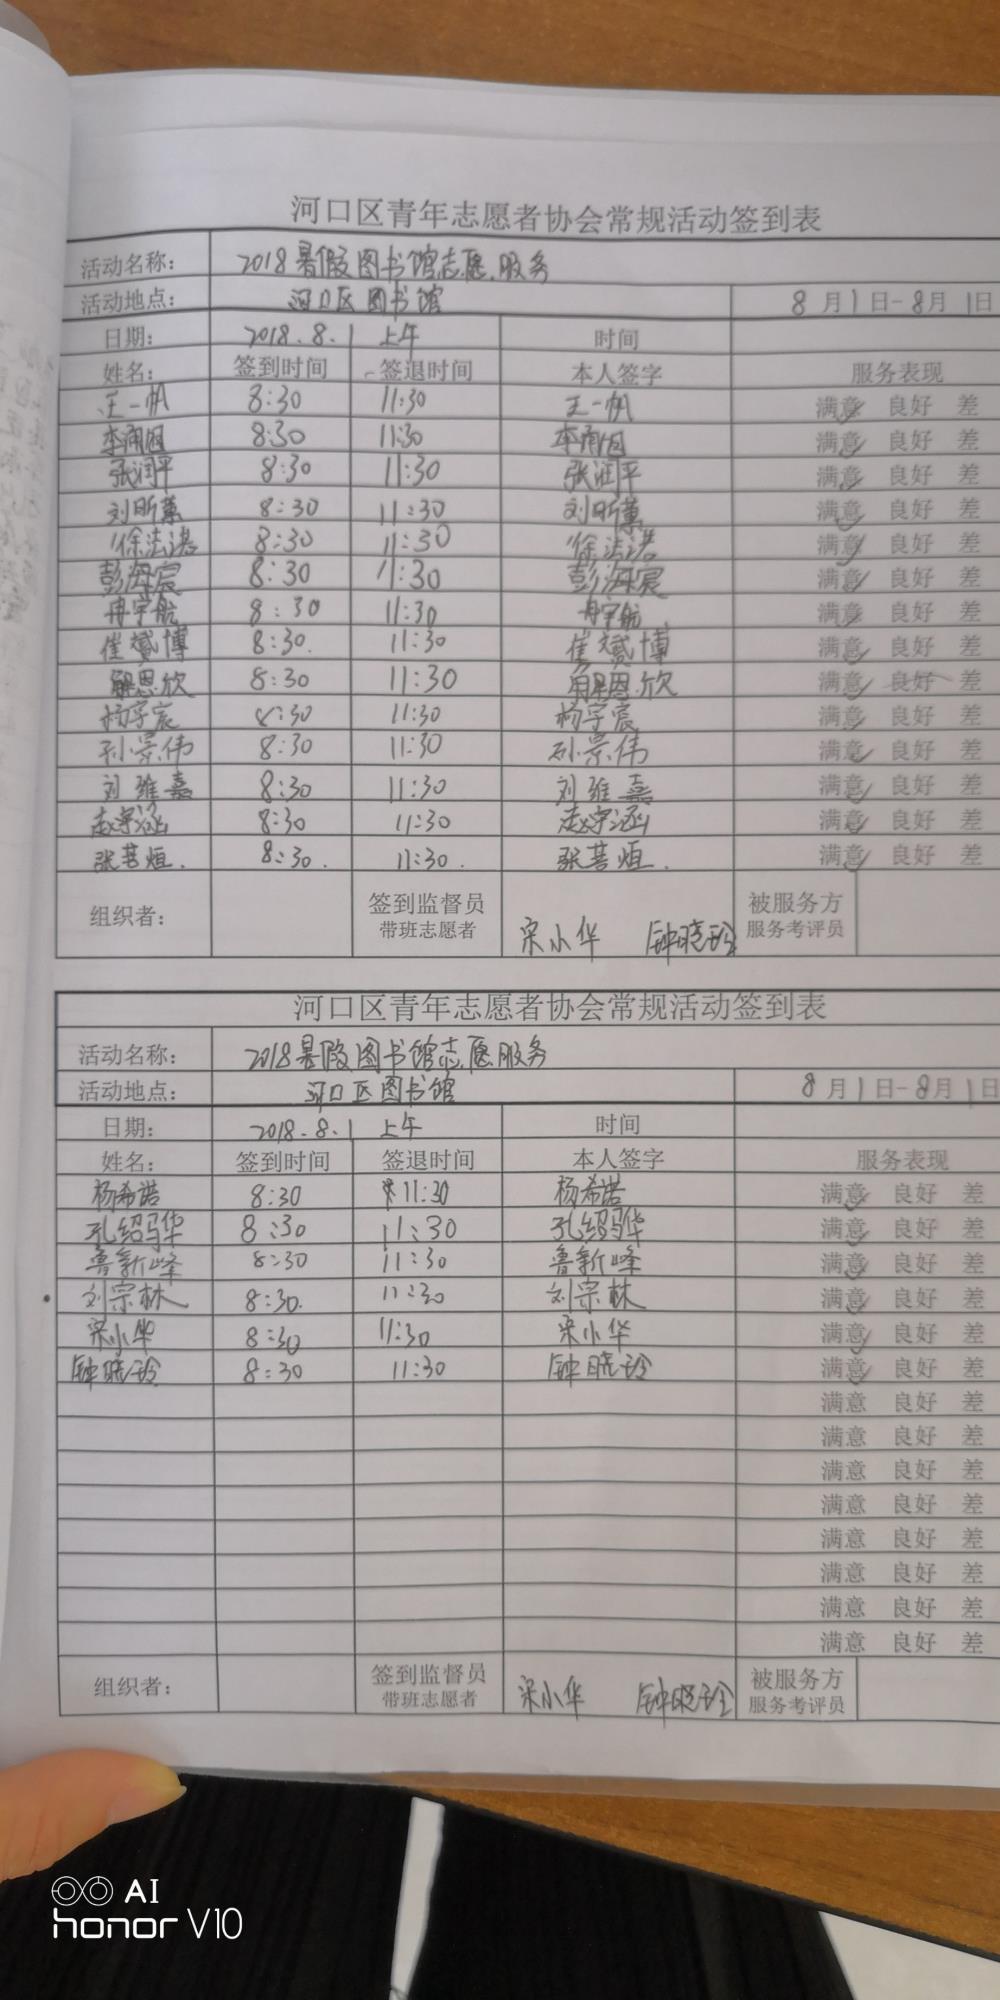 河口区青年志愿者协会常规活动签到表
活动名称: 2018暑假图书馆志愿服务
活动地点: 河口区图书馆 8月1日-8月1日
日期: 2018.8.1 上午 时间
姓名: 签到时间 签退时间 本人签字 服务表现
王一帆 8:30 11:30 王一帆 满意 良好 差
李雨国 8:30 11:30 李雨国 满意 良好 差
张润平 8:30 11:30 张润平 满意 良好 差
刘昕蕙 8:30 11:30 刘昕蕙 满意 良好 差
徐法浩 8:30 11:30 徐法浩 满意 良好 差
彭海宸 8:30 11:30 彭海宸 满意 良好 差
冉宇航 8:30 11:30 冉宇航 满意 良好 差
崔赟博 8:30. 11:30 崔赟博 满意 良好 差
解恩欣 8:30 11:30 解恩欣 满意 良好 差
杨宇宸 8:30 11:30 杨宇宸 满意 良好 差
孙景伟 8:30 11:30 孙景伟 满意 良好 差
刘维嘉 8:30 11:30 刘维嘉 满意 良好 差
赵字涵 8:30 11:30 赵字涵 满意 良好 差
张菩烜. 8:30. 11:30. 张菩烜. 满意 良好 差
组织者: 签到监督员 宋小华 钟晓玲 被服务方
带班志愿者 服务考评员
河口区青年志愿者协会常规活动签到表
活动名称: 2018暑假图书馆志愿服务
活动地点: 河口区图书馆 8月1日-8月1日
日期: 2018.8.1 上午 时间
姓名: 签到时间 签退时间 本人签字 服务表现
杨希诺 8:30 11:30 杨希诺 满意 良好 差
孔绍骅 8:30 11:30 孔绍骅 满意 良好 差
鲁新峰 8:30 11:30 鲁新峰 满意 良好 差
刘宗林 8:30. 11:30 刘宗林 满意 良好 差
宋小华 8:30 11:30 宋小华 满意 良好 差
钟晓玲 8:30 11:30 钟晓玲 满意 良好 差
满意 良好 差
满意 良好 差
满意 良好 差
满意 良好 差
满意 良好 差
满意 良好 差
满意 良好 差
满意 良好 差
组织者: 签到监督员 宋小华 钟晓玲 被服务方
带班志愿者 服务考评员
AI
honor V10